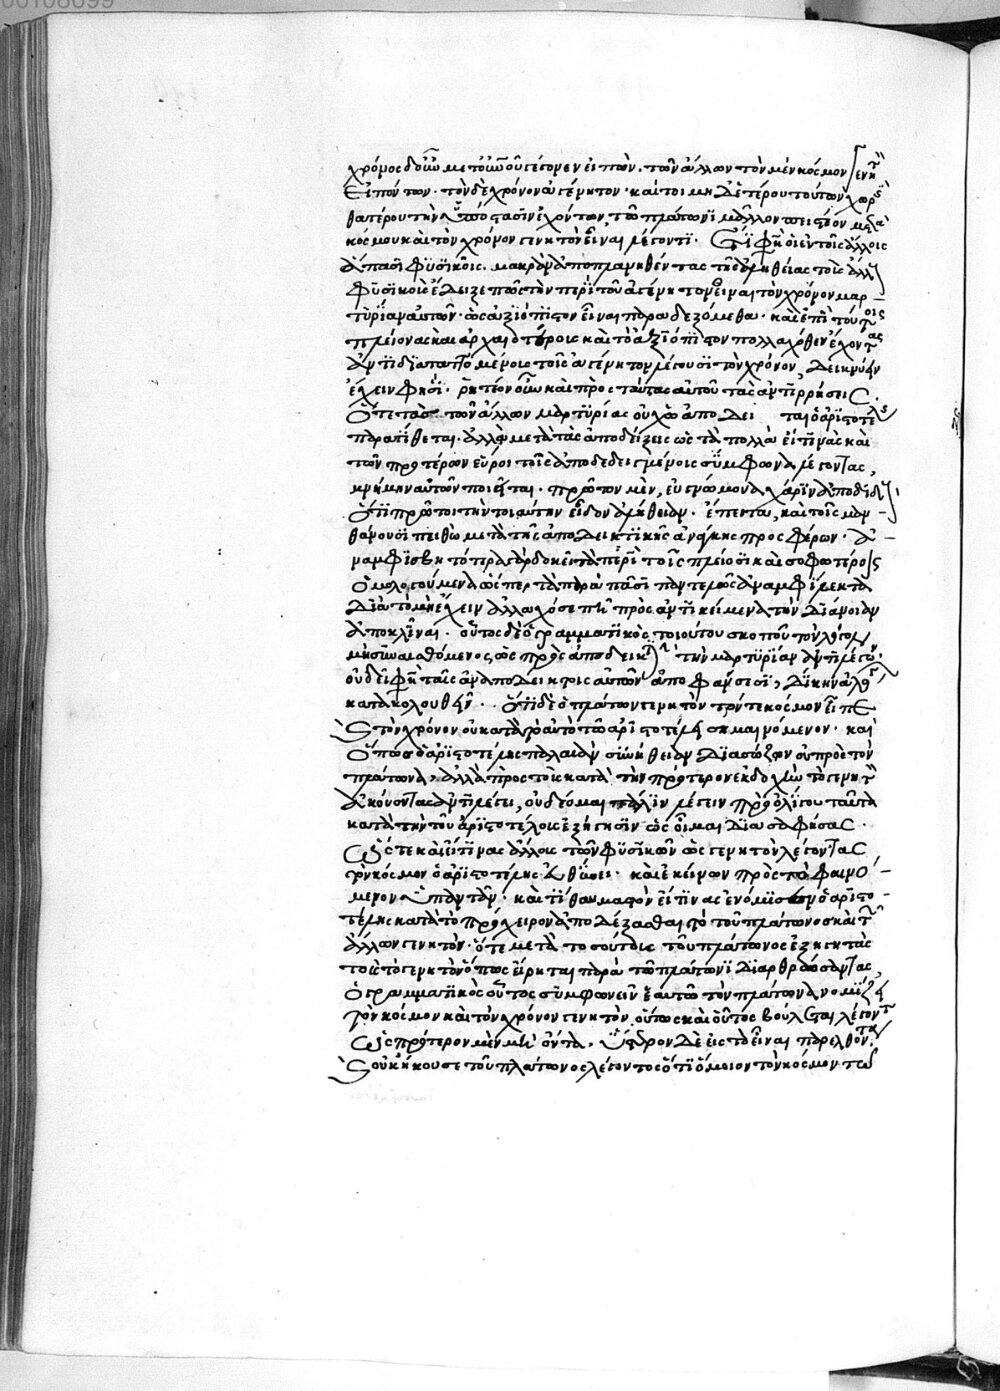 χρόνος δοίη μετ᾽ οὐ γέγονεν εἰπὼν. τῶν ἄλλων τὸν μὲν κόσμον γενητὸν
εἰπόντων. τὸν δὲ χρόνον ἀγένητον. καίτοι μηδετέρου τούτων χωρὶς
θατέρου τὴν ὑπόστασιν ἐχόντων, τῷ πλάτωνι μᾶλλον πειστέον
κόσμου καὶ τὸν χρόνον γενητὸν εἶναι λέγοντι. ἔτι φησὶ
ἅπασι φυσικοῖς. μακρὰν ἀποπλανηθέντας τῆς ἀληθείας τοῖς ἄλλοις
φυσικοῖς ἔδειξε πῶς τὴν περὶ τοῦ ἀγένητον εἶναι τὸν χρόνον μαρ-
τυρίαν αὐτῶν. ὡς ἀξιόπιστον εἶναι παραδεξόμεθα. καὶ ἐπὶ τούτοις
πλείονας καὶ ἀρχαιοτέροις καὶ τὸ ἀξιόπιστον πολλαχόθεν ἔχοντας
ἀντιδιαταττομένοις τοῖς ἀγένητον λέγουσι τὸν χρόνον, δεικνύειν
ἔχειν φησί. ῥητέον οὖν καὶ πρὸς ταύτας αὐτοῦ τὰς ἀντιρρήσεις.
ὅτι τὰς τῶν ἄλλων μαρτυρίας οὐχ ὡς ἀποδει ται ὁ ἀριστοτέλης
παρατίθεται. ἀλλὰ μετὰ τὰς ἀποδείξεις ὡς τὰ πολλὰ εἰ τινὰς καὶ
τῶν προτέρων εὕροι τοῖς ἀποδεδειγμένοις σύμφωνα λέγοντας,
μνήμην αὐτῶν ποιεῖται. πρῶτον μὲν, εὐγνώμονα χάριν ἀποδιδοὺς
ὅτι πρῶτοι τὴν τοιαύτην εἶδον ἀλήθειαν. ἔπειτα, καὶ τοῖς μαν-
θάνουσι πειθὼ μετὰ τῆς ἀποδεικτικῆς ἀνάγκης προσφέρων. ἀ-
ναμφισβητότερα γὰρ δοκεῖ τὰ περὶ τοῖς πλείοσι καὶ σοφωτέροις
ὁμολογούμενα ὥσπερ τὰ παρὰ πᾶσι παντελῶς ἀναμφίλεκτα
διὰ τὸ μὴ ἔχειν ἀλλαχόσε πη πρὸς ἀντικείμενα τὴν διάνοιαν
ἀποκλῖναι. οὗτος δὲ ὁ γραμματικὸς τοιούτου σκοποῦ τὸν λόγον
μήπω αἰσθόμενος, ὡς πρὸς ἀπόδειξιν τὴν μαρτυρίαν ἀντιλέγων.
οὐδὲ ἐφῆ ταῖς ἀναποδείκτοις αὐτῶν ἀποφάνσεσι, δίκην ἀλόγων
κατακολουθεῖν. ὅτι δὲ ὁ πλάτων γενητὸν τόν τε κόσμον εἶπε
καὶ τὸν χρόνον οὐ κατὰ τὸ αὐτὸ τῷ ἀριστοτέλει σημαινόμενον. καὶ
ὅπως ὁ ἀριστοτέλης παλαιὰν συνήθειαν διασώζων οὐ πρὸς τὸν
πλάτωνα, ἀλλὰ πρὸς τοὺς κατὰ τὴν πρότερον ἐκδοχὴν τὸ γενητὸν
ἀκούοντας ἀντιλέγει, οὐ δέομαι πάλιν λέγειν πρὸ ὀλίγου ταῦτα
κατὰ τὴν τοῦ ἀριστοτέλους ἐξήγησιν ὡς οἶμαι διασαφήσας.
ὥστε καὶ εἴ τινας ἄλλους τῶν φυσικῶν ὡς γενητὸν λέγοντας
τὸν κόσμον ὁ ἀριστοτέλης εὐθύνει. καὶ ἐκείνων πρὸς τὸ φαινό-
μενον ὑπαντῶν. καὶ τί θαυμαστὸν εἴ τινας ἐνόμισεν ὁ ἀριστο-
τέλης κατὰ τὸ πρόχειρον ἀποδέξασθαι τὸ τοῦ πλάτωνος καὶ τῶν
ἄλλων γενητόν. ὅτε μετὰ τοσούτους τοῦ πλάτωνος ἐξηγητὰς
τοὺς τὸ γενητὸν ὅπως εἴρηται παρὰ τῷ πλάτωνι διαρθρώσαντας,
ὁ γραμματικὸς οὗτος συμφωνεῖν ἑαυτῷ τὸν πλάτωνα νομίζει
τὸν κόσμον καὶ τὸν χρόνον γενητὸν οὕτως καὶ οὗτος βούλεται λέγοντα
ὡς πρότερον μὲν μὴ ὄντα. ὕστερον δὲ εἰς τὸ εἶναι παρελθόντα.
καὶ οὐκ ἤκουσε τοῦ πλάτωνος λέγοντος ὅτι ὅμοιον τὸν κόσμον τῷ